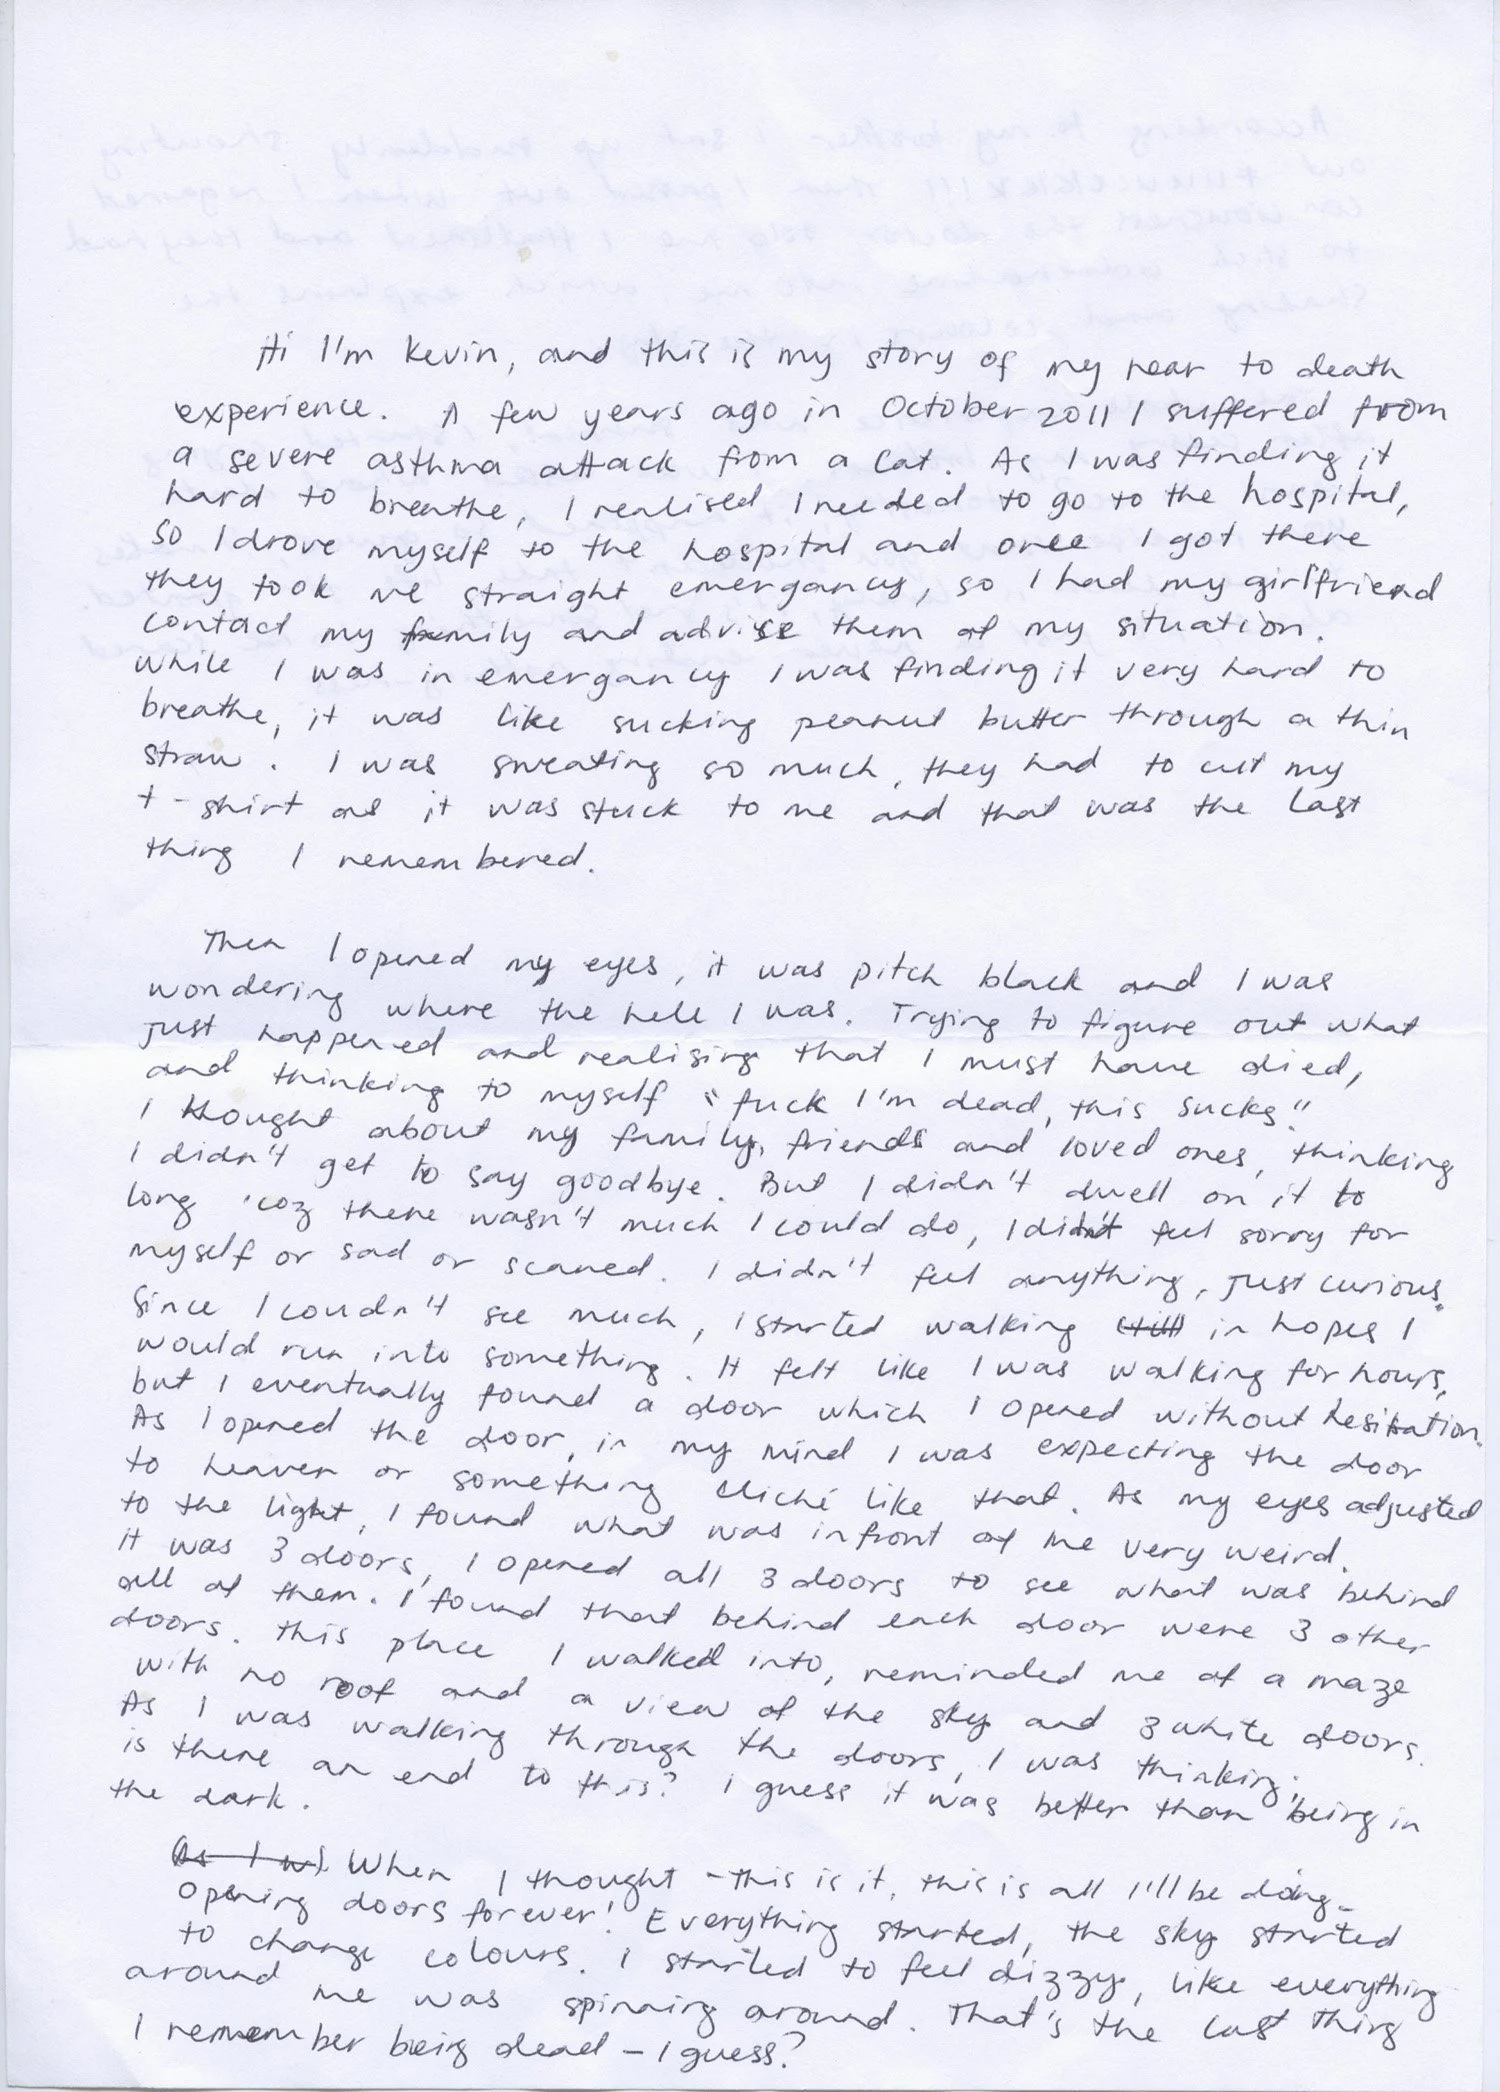 Hi I'm Kevin, and this is my story of my near to death
experience. A few years ago in October 2011 I suffered from
a severe asthma attack from a cat. As I was finding it
hard to breathe, I realised I needed to go to the hospital,
so I drove myself to the hospital and once I got there
they took me straight emergancy, so I had my girlfriend
contact my family and advise them of my situation.
While I was in emergancy I was finding it very hard to
breathe, it was like sucking peanut butter through a thin
straw. I was sweating so much, they had to cut my
t-shirt as it was stuck to me and that was the last
thing I remembered.
Then I opened my eyes, it was pitch black and I was
wondering where the hell I was. Trying to figure out what
just happened and realising that I must have died,
and thinking to myself "fuck I'm dead, this sucks"
I thought about my family, friends and loved ones, thinking
I didn't get to say goodbye. But I didn't dwell on it to
long 'coz there wasn't much I could do, I didn't feel sorry for
myself or sad or scared. I didn't feel anything, just curious.
Since I couldn't see much, I started walking in hopes I
would run into something. It felt like I was walking for hours,
but I eventually found a door which I opened without hesitation.
As I opened the door, in my mind I was expecting the door
to heaven or something cliché like that. As my eyes adjusted
to the light, I found what was infront of me very weird.
It was 3 doors, I opened all 3 doors to see what was behind
all of them. I found that behind each door were 3 other
doors. This place I walked into, reminded me of a maze
with no roof and a view of the sky and 3 white doors.
As I was walking through the doors, I was thinking;
is there an end to this? I guess it was better than being in
the dark.
As I w When I thought - this is it, this is all I'll be doing -
opening doors forever! Everything started, the sky started
to change colours. I started to feel dizzy, like everything
around me was spinning around. That's the last thing
I remember being dead - I guess?